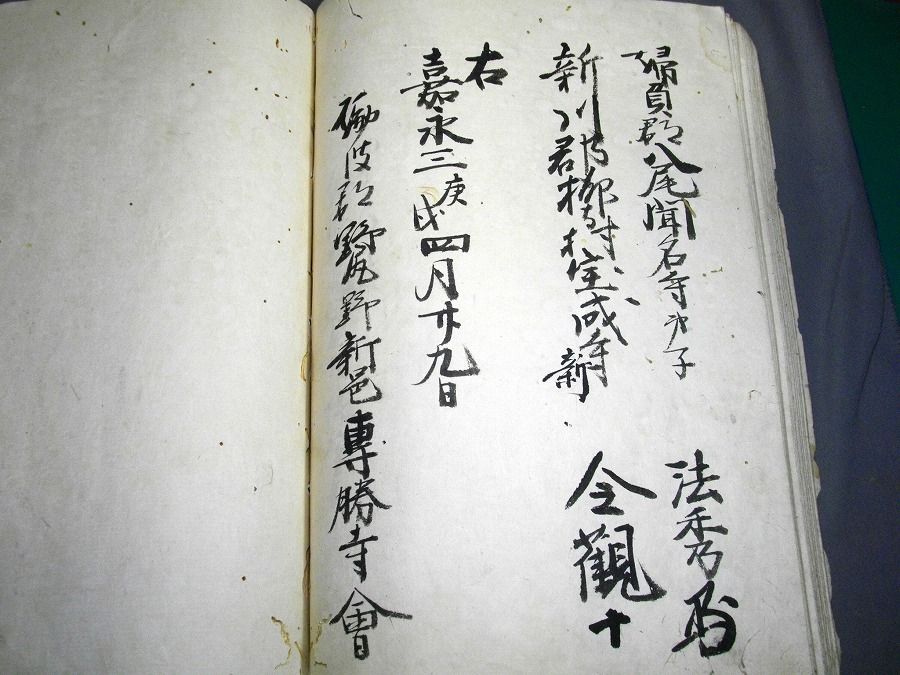 婦負郡八尾聞名寺弟子 法秀
新川郡柳寺村宝成寺新 令觀十
右
嘉永三庚戌四月廿九日
砺波郡鷲野新邑專勝寺會